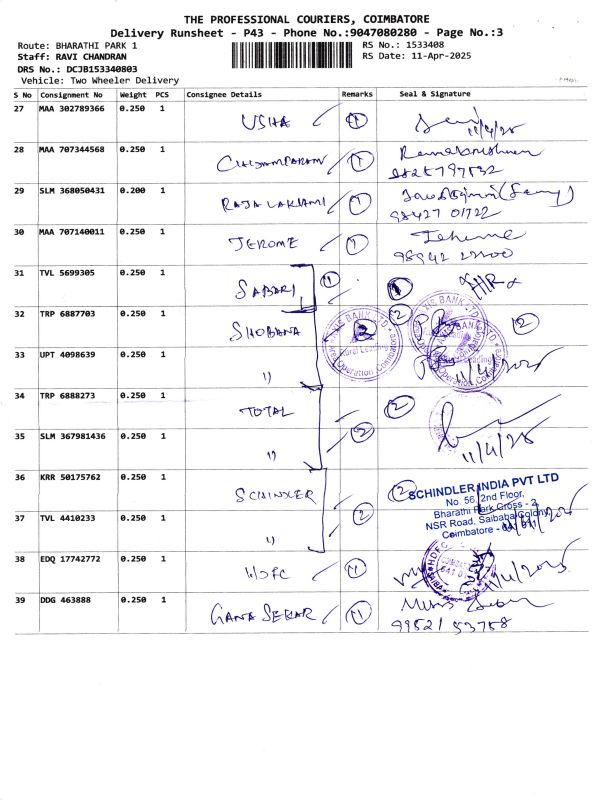 THE PROFESSIONAL COURIERS, COIMBATORE
Delivery Runsheet - P43 - Phone No.:9047080280 - Page No.:3
Route: BHARATHI PARK 1
RS No.: 1533408
Staff: RAVI CHANDRAN
RS Date: 11-Apr-2025
DRS No.: DCJB153340803
Vehicle: Two Wheeler Delivery
S No Consignment No Weight PCS Consignee Details Remarks Seal & Signature
27 MAA 302789366 0.250 1 USHA 1 11/4/25
28 MAA 707344568 0.250 1 CHIDAMPARAM 1 Ramakrishnan
29 SLM 368050431 0.200 1 RAJALAKSHMI 1
98427 01722
30 MAA 707140011 0.250 1 JEROME 1
31 TVL 5699305 0.250 1 SABARI 1
32 TRP 6887703 0.250 1 SHOBANA 2 2
33 UPT 4098639 0.250 1 " 11/4/2025
34 TRP 6888273 0.250 1 TOTAL 2
35 SLM 367981436 0.250 1 " 2 11/4/25
36 KRR 50175762 0.250 1 SCHINDLER 2
SCHINDLER INDIA PVT LTD
No. 56, 2nd Floor,
Bharathi Park Cross - 2
NSR Road, Saibaba Colony
Coimbatore -
37 TVL 4410233 0.250 1 " 2
38 EDQ 17742772 0.250 1 HDFC 1 11/4/2025
39 DDG 463888 0.250 1 GANA SEKAR 1
99521 53758